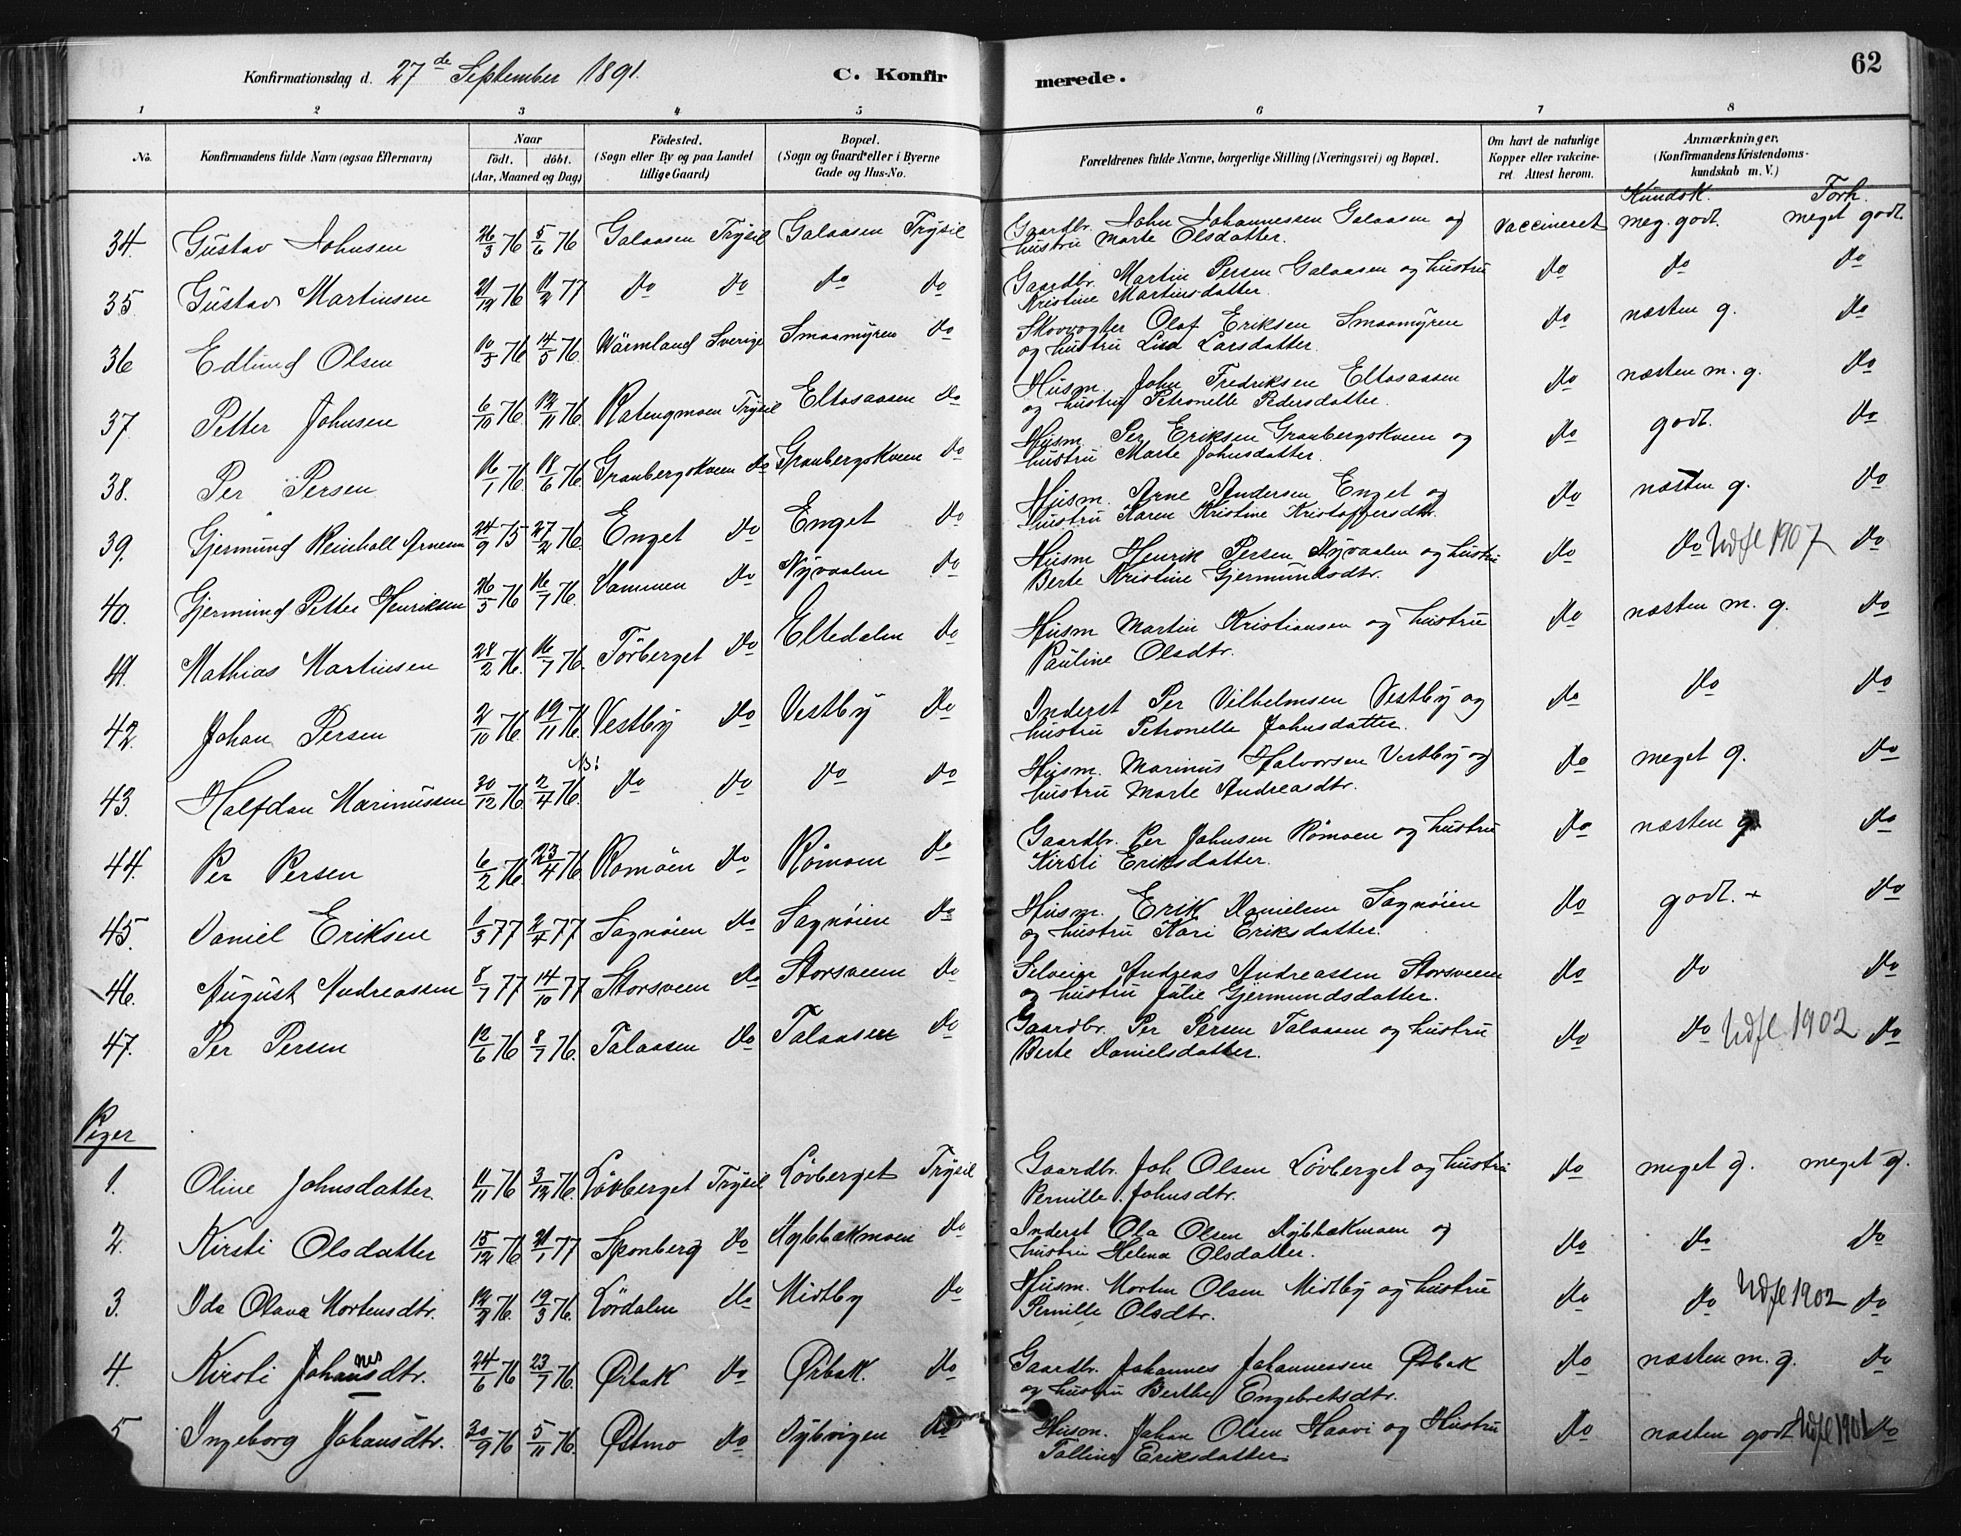 62
Konfirmationsdag d. 27de September 1891. C. Konfirmerede.
1 2 3 4 5 6 7 8
No. Konfirmandens fulde Navn (ogsaa Efternavn) Naar født. døbt. (Aar, Maaned og Dag) Fødested. (Sogn eller By og paa Landet tillige Gaard) Bopæl. (Sogn og Gaard eller i Byerne Gade og Hus-No. Forældrenes fulde Navne, borgerlige Stilling (Næringsvei) og Bopæl. Om havt de naturlige Kopper eller vakcineret. Attest herom. Anmærkninger. (Konfirmandens Kristendomskundskab m. V.)
Kundsk. Forh.
34. Gustav Johnsen 26/3 76 5/6 76 Galaasen Trysil Galaasen Trysil Gaardbr. John Johannessen Galaasen og vaccineret meg. godt. meget godt.
hustru Marte Olsdatter.
35. Gustav Martinsen 21/12 76 11/2 77 do do do do Gaardbr. Martin Persen Galaasen og hustru do do do
Kristine Martinsdatter.
36 Edlund Olsen 10/5 76 14/5 76. Wärmland Sverige Smaamyren do Skovvogter Olof Eriksen Smaamyren do næsten g. do
og hustru Lisa Larsdatter.
37. Petter Johnsen 6/10 76. 12/11 76 Ratengmoen Trysil Eltaaasen do Husm. John Fredriksen Eltaaasen do næsten m. g. do
og hustru Petronelle Pedersdatter.
38. Per Persen 16/1 76. 18/6 76. Granbergskveen do Granbergskveen do Husm. Per Eriksen Granbergskveen og do godt. do
hustru Marte Johnsdatter.
39. Gjermund Reinholt Arnesen 24/9 75 27/2 76. Enget do Enget do Husm. Arne Andersen Enget og do næsten g. do
hustru Karen Kristine Kristoffersdtr.
40. Gjermund Petter Henriksen 26/5 76 16/7 76. Vammen do Nyvaalen do Husm Henrik Persen Nyvaalen og hustru do do Udfl 1907 do
Berte Kristine Gjermundsdtr.
41. Mathias Martinsen 28/2 76. 16/7 76. Tørberget do Eltedalen do Husm Martin Kristiansen og hustru do næsten m. g. do
Pauline Olsdtr.
42. Johan Persen 2/10 76. 19/11 76. Vestby do Vestby do Inderst Per Vilhelmsen Vestby og do do do
hustru Petronelle Johnsdatter.
43. Halfdan Marinussen 20/12 76 N.B! 2/4 76. do do do do Husm. Marinus Halvorsen Vestby og do meget g. do
hustru Marte Andreasdtr.
44. Per Persen 6/2 76. 23/4 76. Rømoen do Rømoen do Gaardbr. Per Johnsen Rømoen og hustru do næsten g do
Kirsti Eriksdatter.
45. Daniel Eriksen 1/3 77 2/4 77 Sagnøien do Sagnøien do Husm. Erik Danielsen Sagnøien do godt. + do
og hustru Kari Eriksdatter.
46. August Andreassen 8/7 77 14/10 77 Storsveen do Storsveen do Selveier Andreas Andreassen Storsveen do do do
og hustru Julie Gjermundsdatter.
47. Per Persen 12/6 76 8/7 76. Talaasen do Talaasen do Gaardbr. Per Persen Talaasen og hustru do do Udfl 1902 do
Berte Danielsdatter.
Piger
1. Oline Johnsdatter 11/11 76 3/12 76. Løvberget Trysil Løvberget Trysil Gaardbr. Joh Olsen Løvberget og hustru do meget g. meget g.
Pernille Johnsdtr.
2. Kirsti Olsdatter 15/12 76 21/1 77 Sponberg do Nybbakmoen do Inderst Ola Olsen Nybbakmoen og do do do
hustru Helena Olsdatter.
3. Ida Olava Mortensdtr. 12/2 76. 19/3 76. Lørdalen do Midtby do Husm. Morten Olsen Midtby og hustru do do Udfl 1902 do
Pernille Olsdtr.
4. Kirsti Johannesdtr. 24/6 76 23/7 76. Ørbak do Ørbak. do Gaardbr. Johannes Johannessen Ørbak do næsten m. g. do
og hustru Berthe Engebretsdtr.
5 Ingeborg Johansdtr. 30/9 76 5/11 76. Østmo do Dybvigen do Husm. Johan Olsen Haavi og Hustru do næsten godt Udfl 1901 do
Talline Eriksdatter.